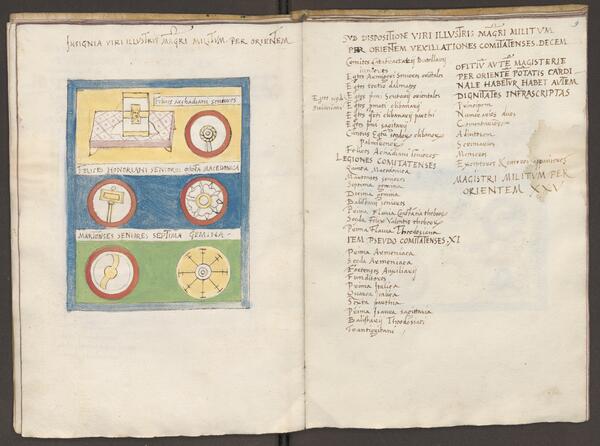 INSIGNIA VIRI ILLUSTRIS MAGRI MILITUM PER ORIENTEM
Felices Archadiani seniores
FELICES HONORIANI SENIORES QVINTA MACEDONICA
MARTENSES SENIORES SEPTIMA GEMINA
9
SVB DISPOSITIONE VIRI ILLVSTRIS MAGRI MILITVM
PER ORIENEM VEXILLATIONES COMITATENSES. DECEM
Comites
iuniores
Eqtes Armigeri Seniores orientales
Eqtes tertio dalmatae
Eqtes pmi Scutarii orientales
Eqtes
Eqtes pmi
Eqtes pmi sagitarii
Cuneus
Palmirenorum
Felices Achadiani seniores
LEGIONES COMITATENSES
Quinta Macedonica
Martenses seniores
Septima gemina
Decima gemina
Balistarii seniores
Prima Flavia Constantia thebeor
Scda Felix Valentis thebeor
Prima Flavia Theodosiana
ITEM PSEVDO COMITATENSES. XI
Prima Armeniaca
Scda Armeniaca
Auxiliarii
Funditores
Prima Italica
Quarta Italica
Sexta parthica
Prima Isaura sagittaria
Balistarii Theodosiaci
Trantigitani
OFITIV AVTE MAGISTERIE
PER ORIENTE POTATIS CARDI
NALE HABETVR HABET AVTEM
DIGNITATES INFRASCRIPTAS
Principem
Numerarios duos
Comentariesem
Adiutorem
Scriniarios
Exceptores
MAGISTRI MILITVM PER
ORIENTEM XXV